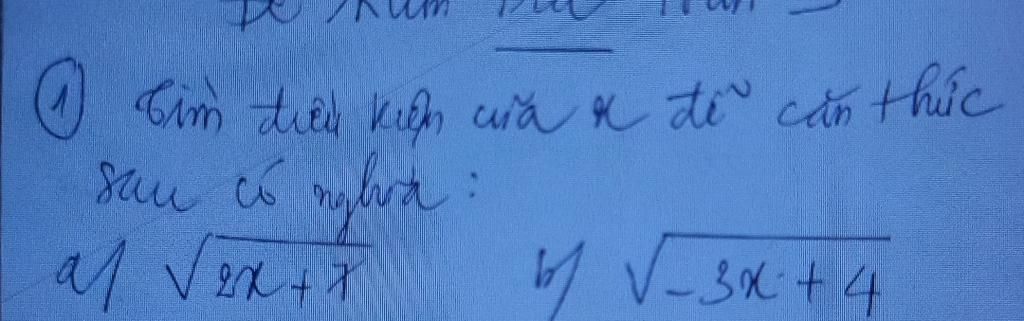 ① Tìm điều kiện của x để căn thức
sau có nghĩa :
a) √2x + 7 b) √-3x + 4